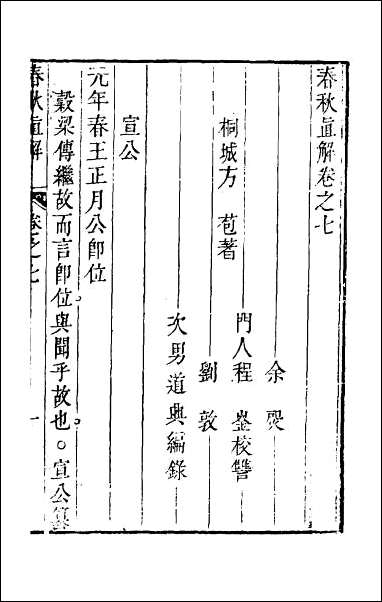 春秋直解卷之七
余熙
桐城方苞著
門人程崟校讐
劉敦
次男道興編錄
宣公
元年春王正月公卽位
穀梁傳繼故而言卽位與聞乎故也。宣公篡
春秋直解
卷之七
一